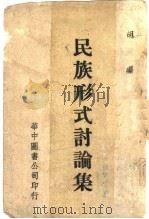 胡風編
民族形式討論集
華中圖書公司印行